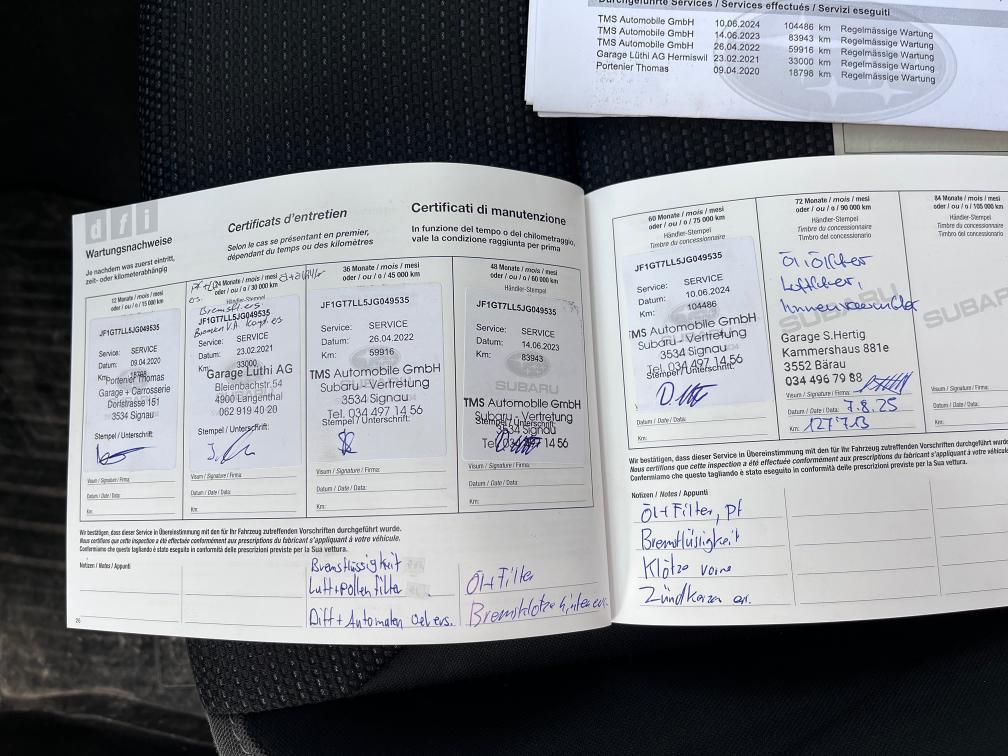 Durchgeführte Services / Services effectués / Servizi eseguiti
TMS Automobile GmbH 10.06.2024 104486 km Regelmässige Wartung
TMS Automobile GmbH 14.06.2023 83943 km Regelmässige Wartung
TMS Automobile GmbH 26.04.2022 59916 km Regelmässige Wartung
Garage Lüthi AG Hermiswil 23.02.2021 33000 km Regelmässige Wartung
Portenier Thomas 09.04.2020 18798 km Regelmässige Wartung
dfi
Wartungsnachweise
Je nachdem was zuerst eintritt,
zeit- oder kilometerabhängig
Certificats d'entretien
Selon le cas se présentant en premier,
dépendant du temps ou des kilomètres
Certificati di manutenzione
In funzione del tempo o del chilometraggio,
vale la condizione raggiunta per prima
12 Monate / mois / mesi
oder / ou / o / 15 000 km
JF1GT7LL5JG049535
Service: SERVICE
Datum: 09.04.2020
Km: 18798
Portenier Thomas
Garage + Carrosserie
Dorfstrasse 161
3534 Signau
Stempel / Unterschrift:
Visum / Signature / Firma:
Datum / Date / Data:
Km:
24 Monate / mois / mesi
oder / ou / o / 30 000 km
Händler-Stempel
ers.
Bremsfl. ers.
JF1GT7LL5JG049535
Bremsen V.A.
Service: SERVICE
Datum: 23.02.2021
Km: 33000
Garage Lüthi AG
Bleienbachstr.54
4900 Langenthal
062 919 40 20
Stempel / Unterschrift:
Visum / Signature / Firma:
Datum / Date / Data:
Km:
36 Monate / mois / mesi
oder / ou / o / 45 000 km
JF1GT7LL5JG049535
Service: SERVICE
Datum: 26.04.2022
Km: 59916
TMS Automobile GmbH
Subaru - Vertretung
3534 Signau
Tel. 034 497 14 56
Stempel / Unterschrift:
Visum / Signature / Firma:
Datum / Date / Data:
Km:
48 Monate / mois / mesi
oder / ou / o / 60 000 km
Händler-Stempel
JF1GT7LL5JG049535
Service: SERVICE
Datum: 14.06.2023
Km: 83943
SUBARU
TMS Automobile GmbH
Subaru - Vertretung
Stempel / Unterschrift:
3534 Signau
Tel. 034 497 14 56
Visum / Signature / Firma:
Datum / Date / Data:
Km:
Wir bestätigen, dass dieser Service in Übereinstimmung mit den für Ihr Fahrzeug zutreffenden Vorschriften durchgeführt wurde.
Nous certifions que cette inspection a été effectuée conformément aux prescriptions du fabricant s'appliquant à votre véhicule.
Confermiamo che questo tagliando è stato eseguito in conformità delle prescrizioni previste per la Sua vettura.
Notizen / Notes / Appunti
Bremsflüssigkeit
Luft + Pollenfilter
Diff + Automaten Oel ers.
Öl + Filter
Bremsklötze hinten ers.
26
60 Monate / mois / mesi
oder / ou / o / 75 000 km
Händler-Stempel
Timbre du concessionnaire
JF1GT7LL5JG049535
Service: SERVICE
Datum: 10.06.2024
Km: 104486
TMS Automobile GmbH
Subaru - Vertretung
3534 Signau
Tel. 034 497 14 56
Stempel / Unterschrift:
Datum / Date / Data:
Km:
72 Monate / mois / mesi
oder / ou / o / 90 000 km
Händler-Stempel
Timbre du concessionnaire
Timbro del concessionario
Öl, Ölfilter
Luftfilter,
Innenraumfilter
SUBARU
Garage S.Hertig
Kammershaus 881e
3552 Bärau
034 496 79 88
Visum / Signature / Firma:
Datum / Date / Data: 7.8.25
Km: 127'713
84 Monate / mois / mesi
oder / ou / o / 105 000 km
Händler-Stempel
Timbre du concessionnaire
Timbro del concessionario
SUBARU
Visum / Signature / Firma:
Datum / Date / Data:
Km:
Wir bestätigen, dass dieser Service in Übereinstimmung mit den für Ihr Fahrzeug zutreffenden Vorschriften durchgeführt
Nous certifions que cette inspection a été effectuée conformément aux prescriptions du fabricant s'appliquant à votre véhicule
Confermiamo che questo tagliando è stato eseguito in conformità delle prescrizioni previste per la Sua vettura.
Notizen / Notes / Appunti
Öl + Filter, Pf
Bremsflüssigkeit
Klötze vorne
Zündkerzen ers.